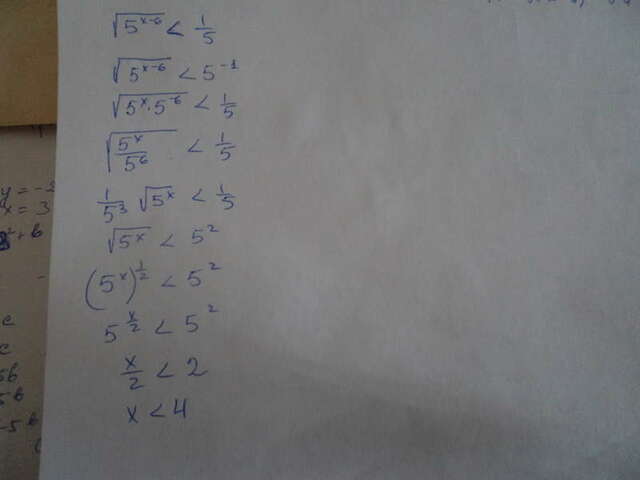 √5^(x-6) < 1/5
√5^(x-6) < 5^(-1)
√5^x · 5^(-6) < 1/5
√(5^x/5^6) < 1/5
1/5^3 √5^x < 1/5
√5^x < 5^2
(5^x)^(1/2) < 5^2
5^(x/2) < 5^2
x/2 < 2
x < 4
x = 3